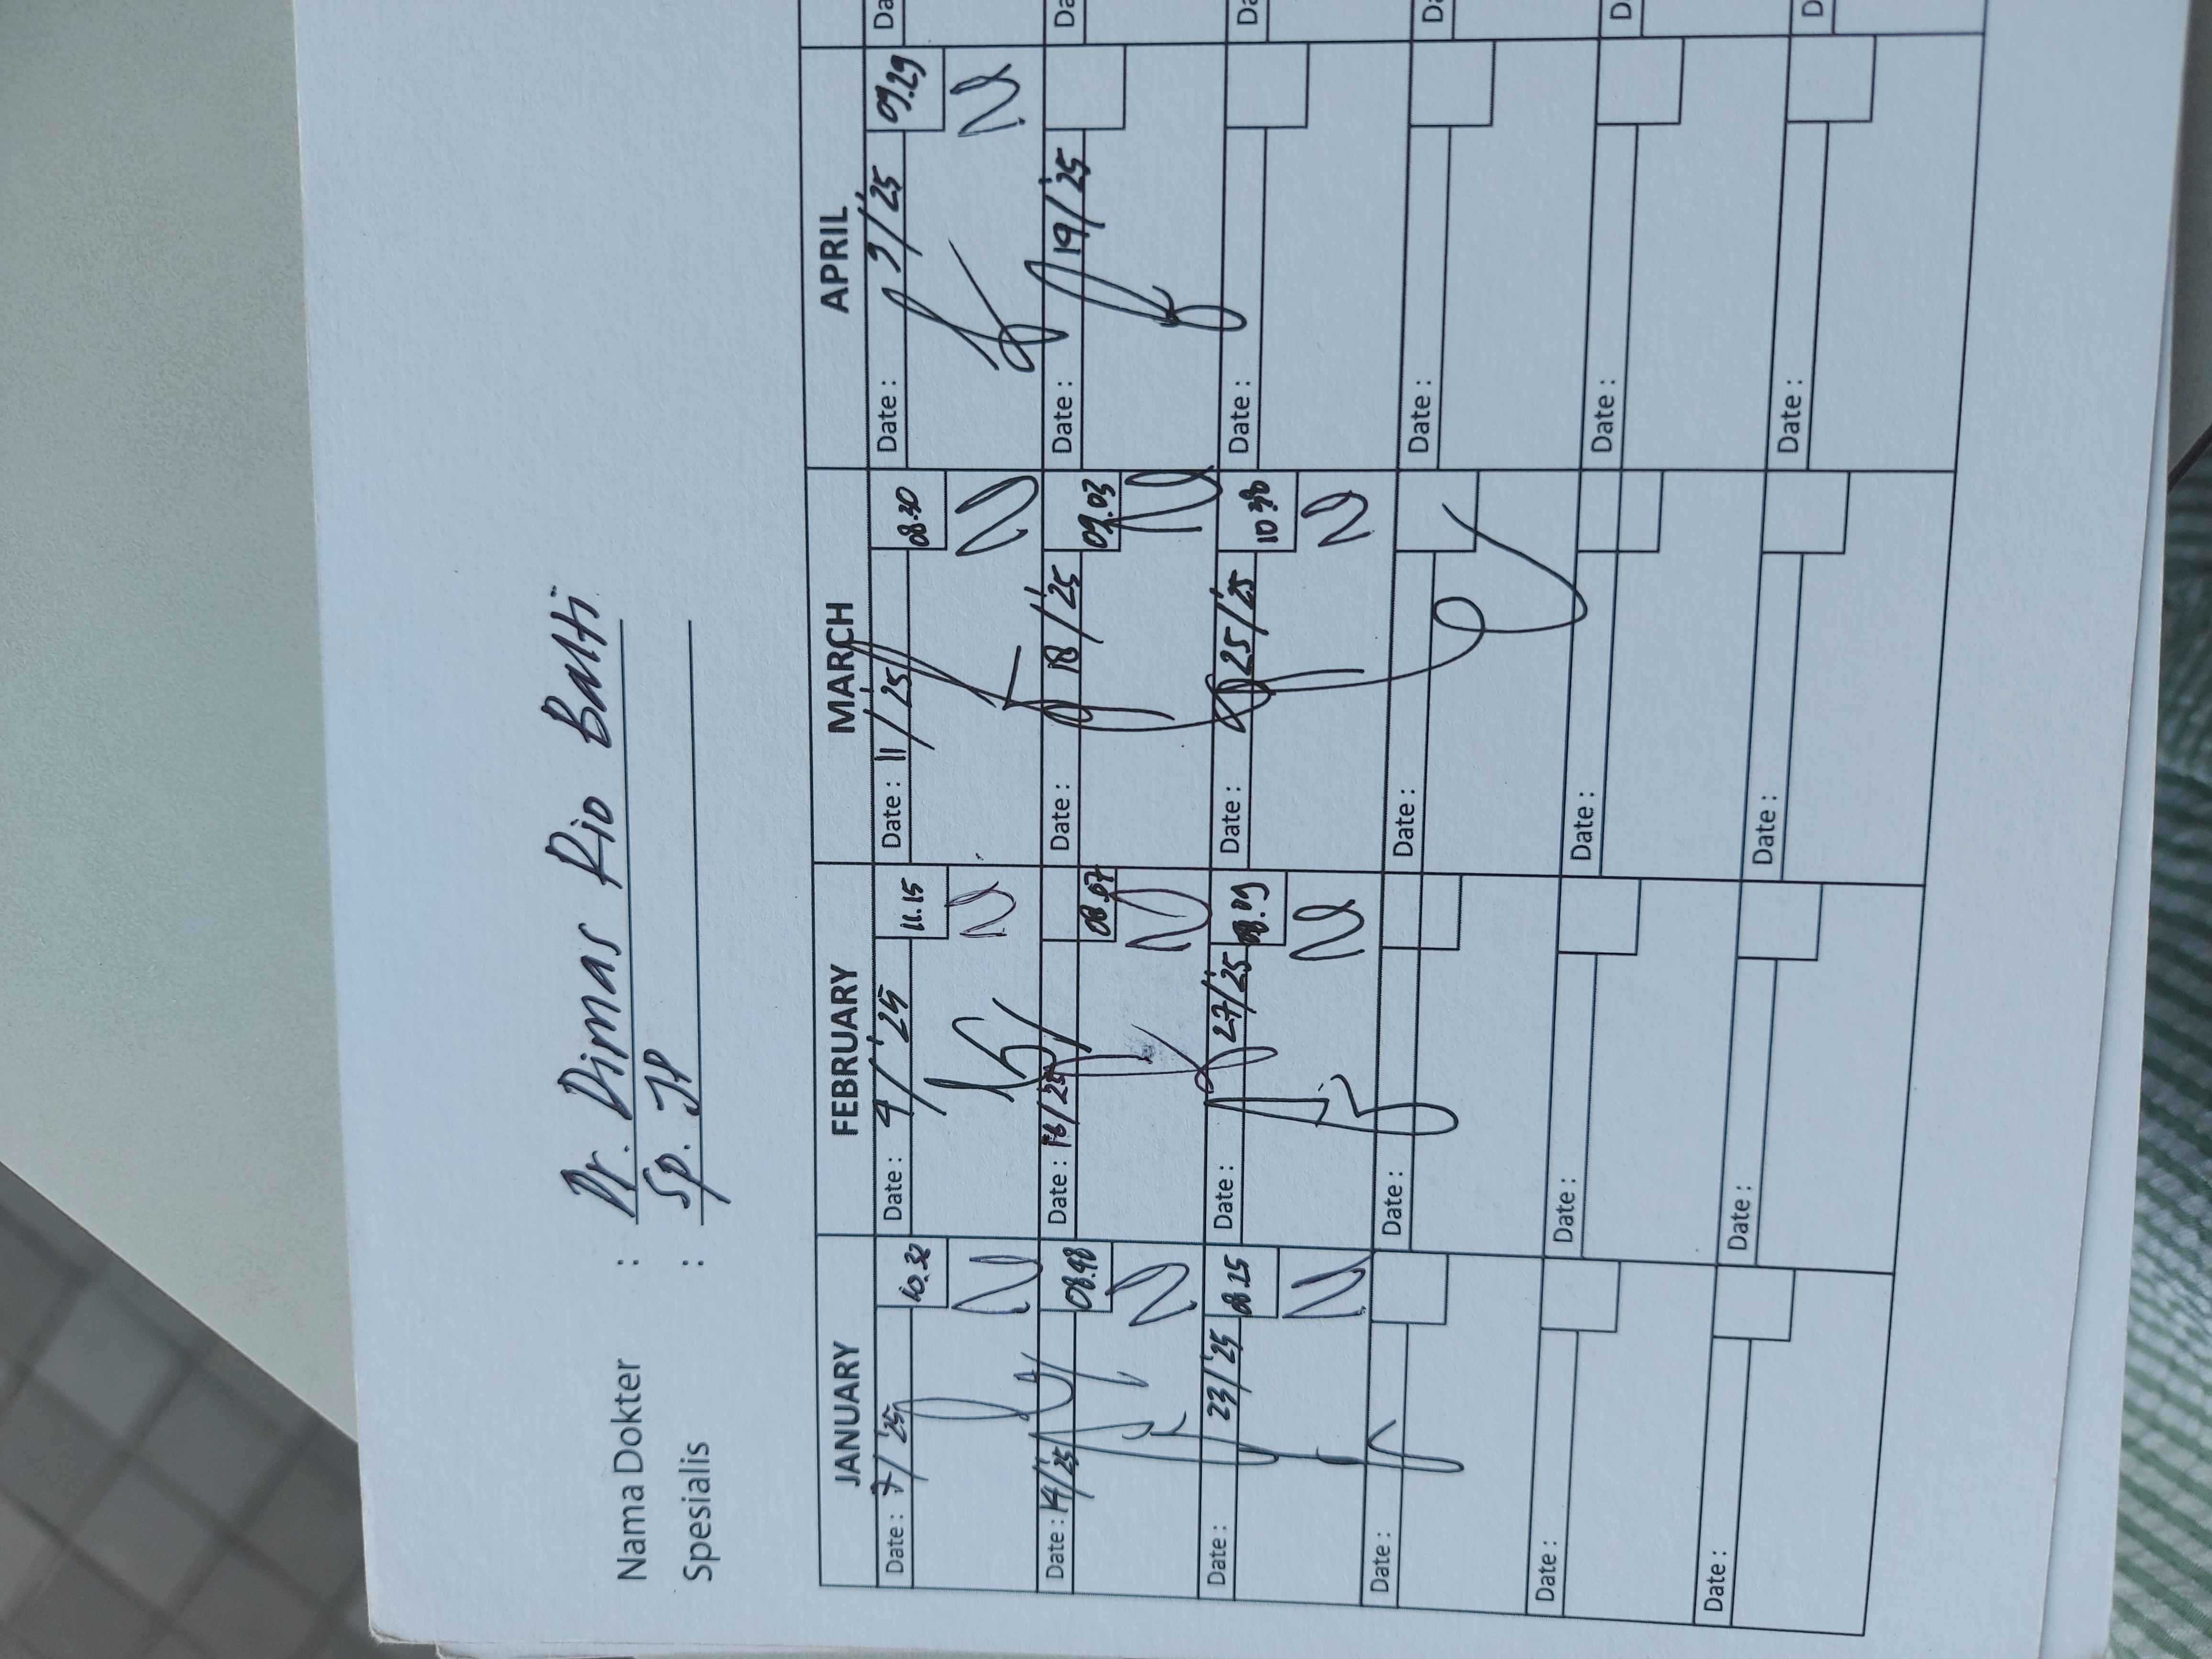 Nama Dokter : Dr. Dimas Rio Balti
Spesialis : Sp. JP
JANUARY FEBRUARY MARCH APRIL
Date : 7/'25 10.32 Date : 4/'25 11.15 Date : 11/'25 08.30 Date : 9/'25 09.29 Da
Date : 14/'25 08.48 Date : 18/'25 08.07 Date : 18/'25 09.03 Date : 19/'25 Da
Date : 23/'25 08.25 Date : 27/'25 08.09 Date : 25/'25 10.30 Date : Da
Date : Date : Date : Date : Da
Date : Date : Date : Date : D
Date : Date : Date : Date : D